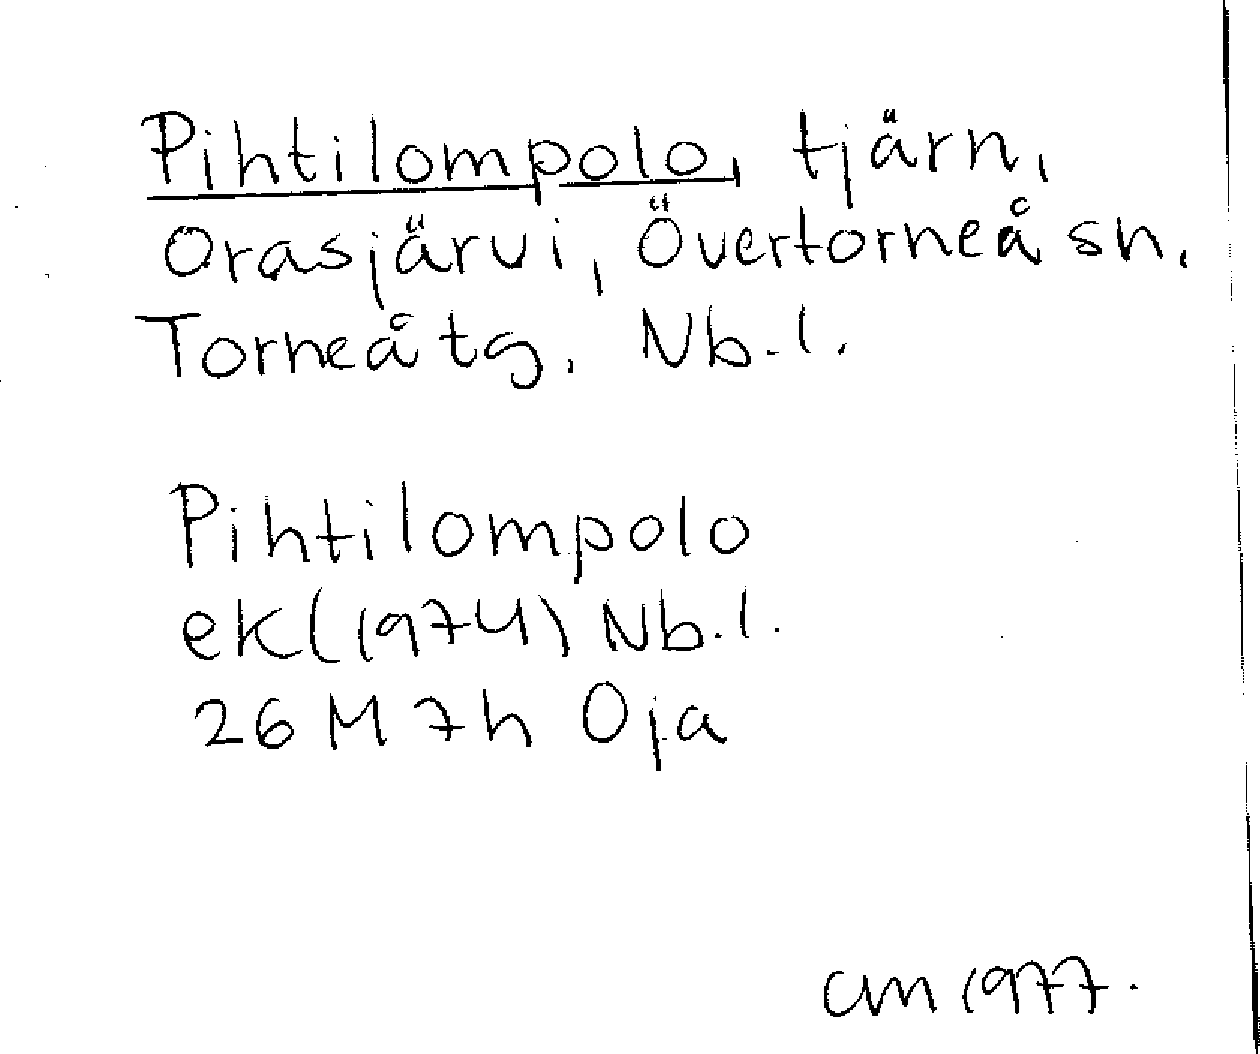 Pihtilompolo, tjärn,
Orasjärvi, Övertorneå sn.
Torneå tg. Nb.l.
Pihtilompolo
ek (1974) Nb.l.
26 M 7h Oja
CM 1977.